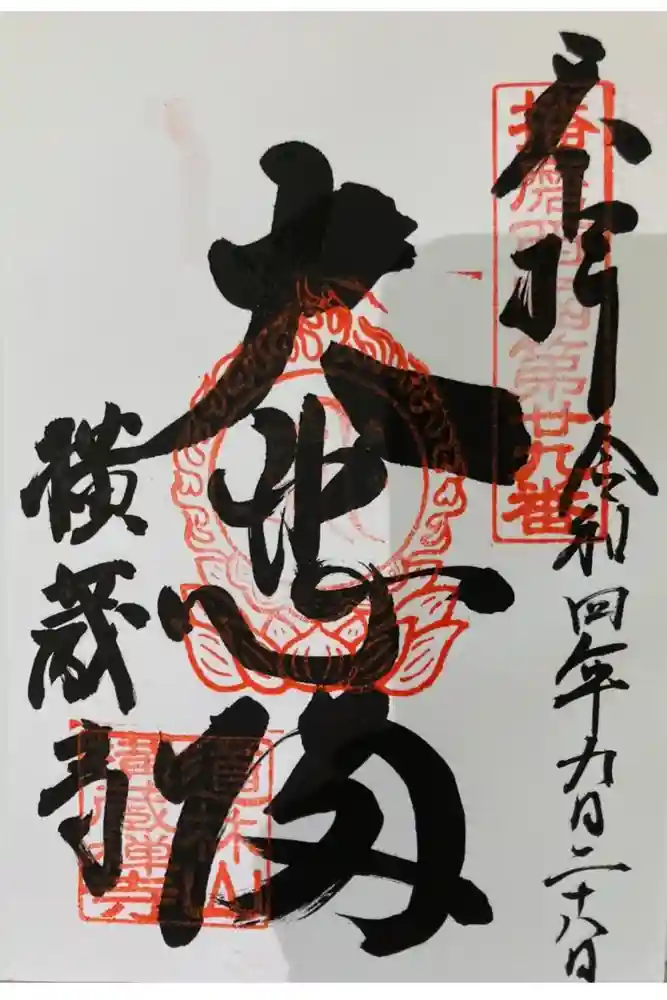 奉拝
令和四年九月二十八日
播磨西国第廿九番
大悲殿
横蔵寺
横蔵禅寺